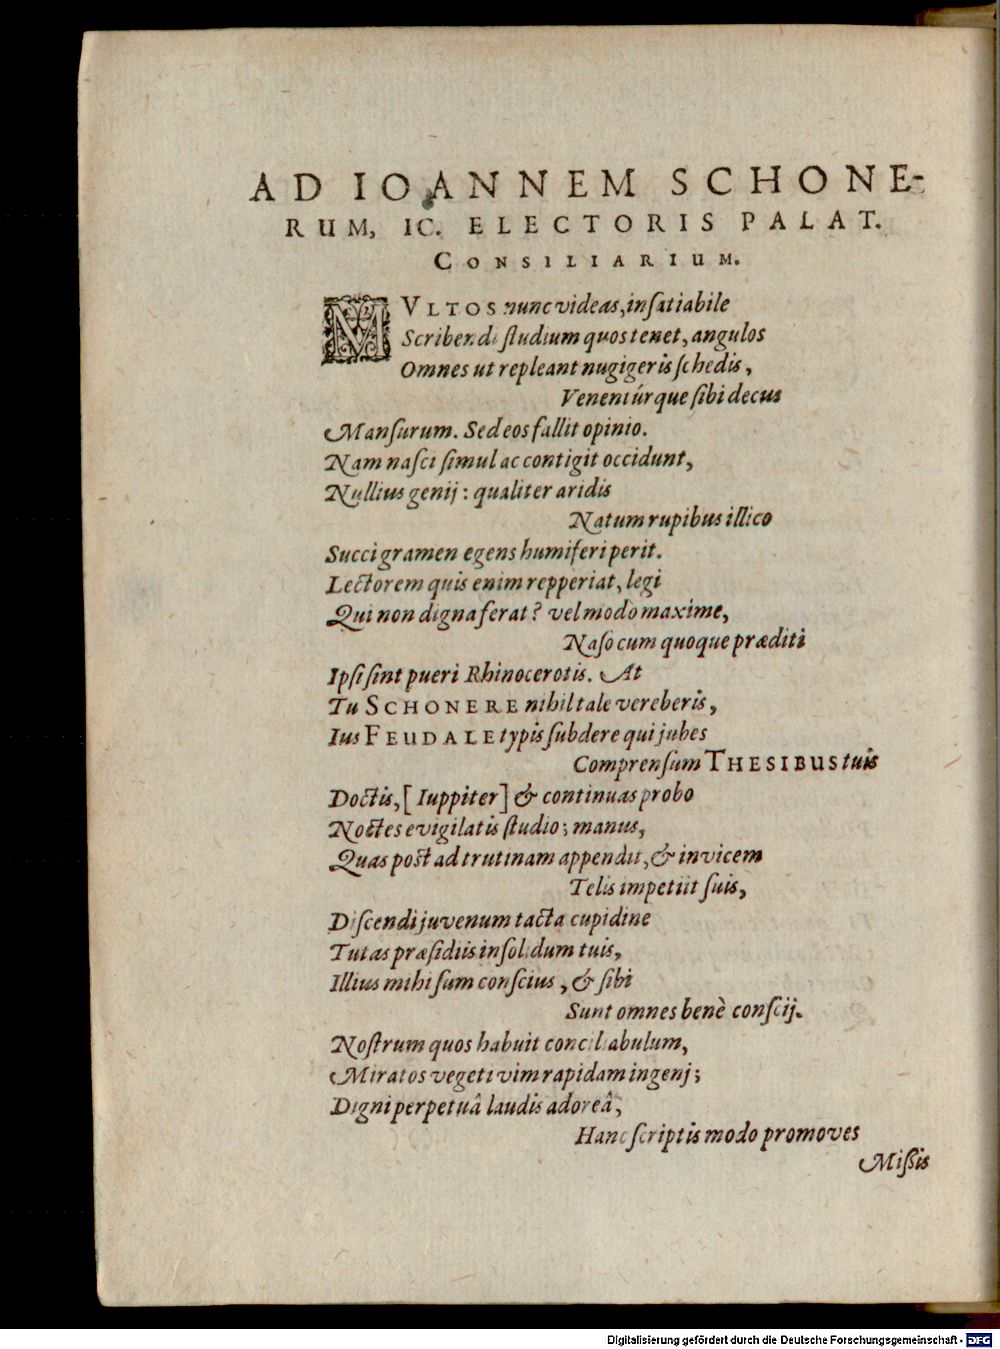 AD IOANNEM SCHONE-
RUM, IC. ELECTORIS PALAT.
CONSILIARIUM.
MVLTOS nunc videas, insatiabile
Scribendi studium quos tenet, angulos
Omnes ut repleant nugigeris schedis,
Veneniúrque sibi decus
Mansurum. Sed eos fallit opinio.
Nam nasci simul ac contigit occidunt,
Nullius genij: qualiter aridis
Natum rupibus illico
Succi gramen egens humiferi perit.
Lectorem quis enim repperiat, legi
Qui non digna ferat? vel modò maxime,
Naso cum quoque præditi
Ipsi sint pueri Rhinocerotis. At
Tu SCHONERE nihil tale vereberis,
Ius FEUDALE typis subdere qui jubes
Comprensum THESIBUS tuis
Doctis, [Iuppiter] & continuas probo
Noctes evigilatis studio; manus,
Quas post ad trutinam appendit, & invicem
Telis impetiit suis,
Discendi juvenum tacta cupidine
Tutas præsidiis insolidum tuis,
Illius mihi sum conscius, & sibi
Sunt omnes benè conscij.
Nostrum quos habuit conciliabulum,
Miratos vegeti vim rapidam ingenj;
Digni perpetuâ laudis adoreâ,
Hanc scriptis modo promoves
Missis
Digitalisierung gefördert durch die Deutsche Forschungsgemeinschaft - DFG